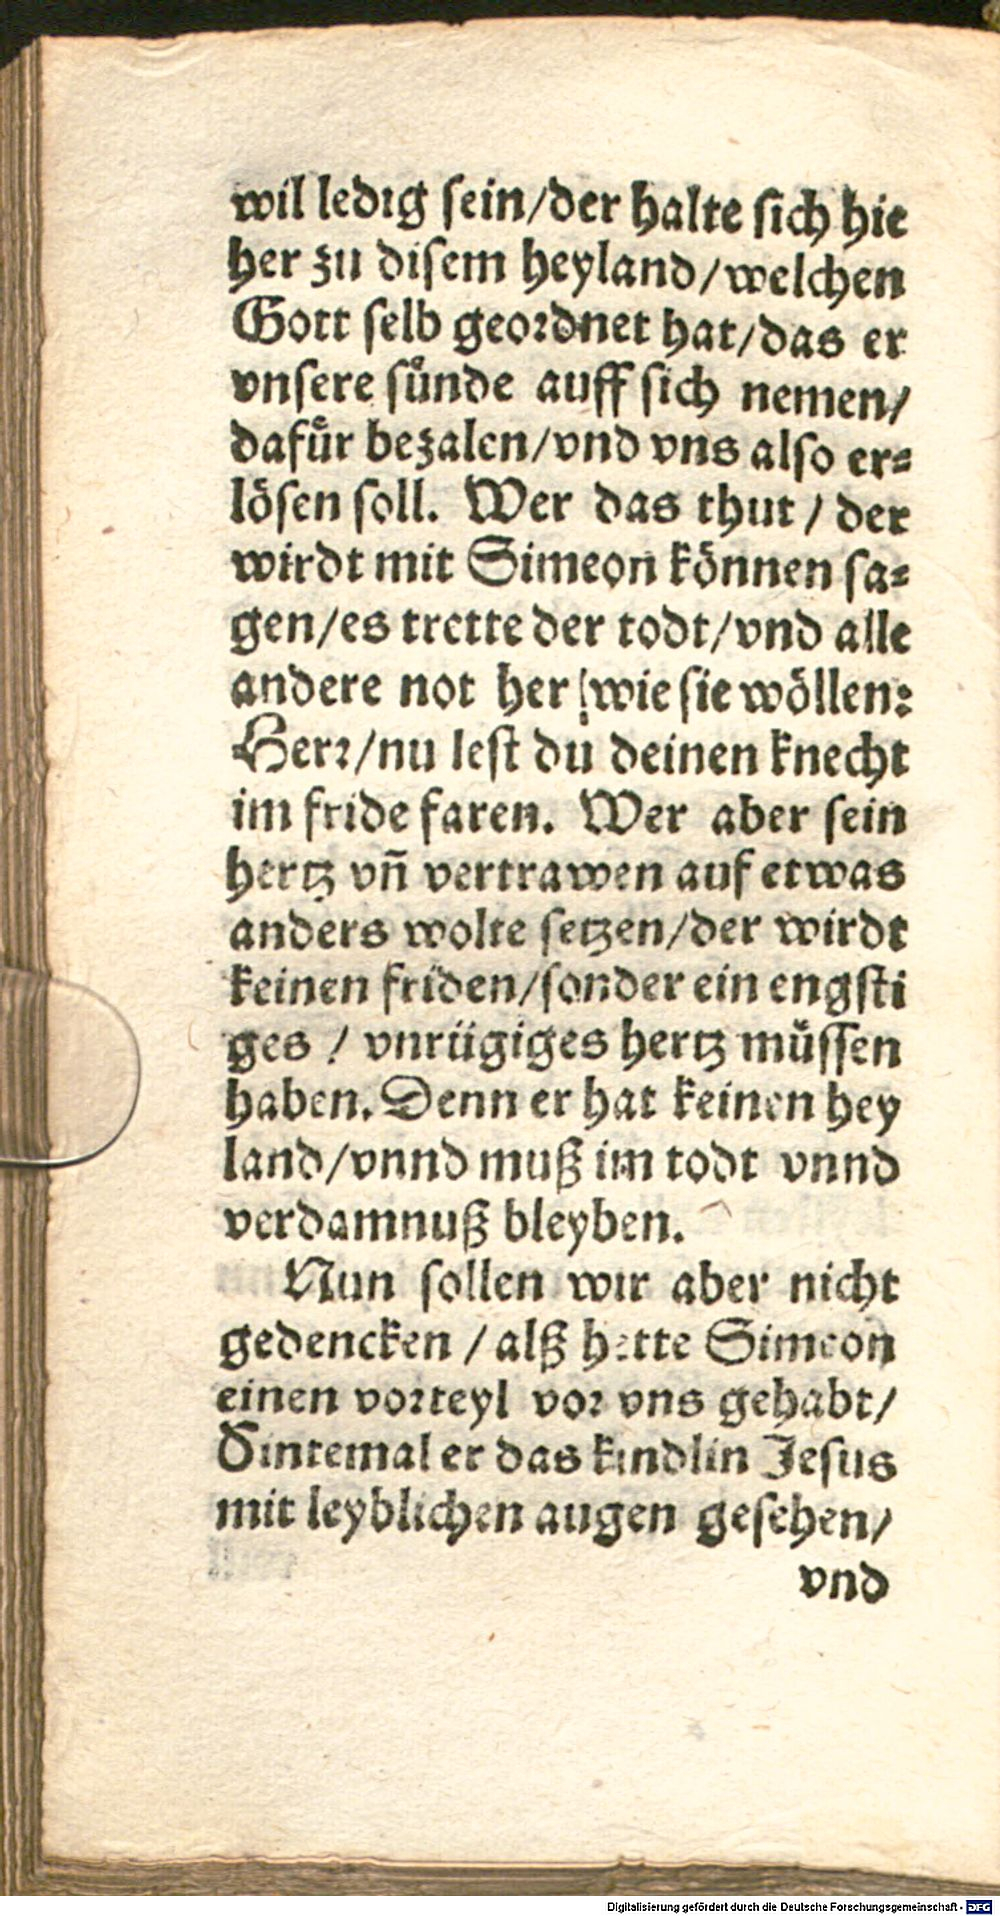 wil ledig sein/der halte sich hie
her zu disem heyland/welchen
Gott selb geordnet hat/das er
vnsere sünde auff sich nemen/
dafür bezalen/vnd vns also er⸗
lösen soll. Wer das thut / der
wirdt mit Simeon können sa⸗
gen/es trette der todt/vnd alle
andere not her/wie sie wöllen:
Herr/nu lest du deinen knecht
im fride faren. Wer aber sein
hertz vn̄ vertrawen auf etwas
anders wolte setzen/der wirdt
keinen friden/sonder ein engsti
ges / vnrügiges hertz müssen
haben. Denn er hat keinen hey
land/vnnd muß im todt vnnd
verdamnuß bleyben.
Nun sollen wir aber nicht
gedencken / alß hette Simeon
einen vorteyl vor vns gehabt/
Sintemal er das kindlin Jesus
mit leyblichen augen gesehen/
vnd
Digitalisierung gefördert durch die Deutsche Forschungsgemeinschaft - DFG